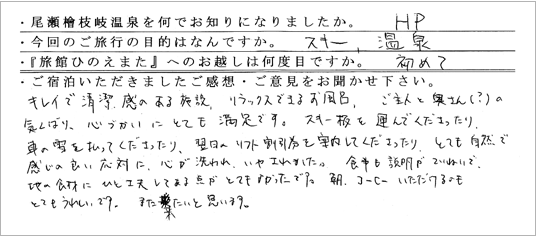 ・尾瀬檜枝岐温泉を何でお知りになりましたか。 HP
・今回のご旅行の目的はなんですか。 スキー, 温泉
・『旅館ひのえまた』へのお越しは何度目ですか。 初めて
・ご宿泊いただきましたご感想・ご意見をお聞かせ下さい。
キレイで清潔感のある施設, リラックスできるお風呂, ご主人と奥さん(?)の
気くばり, 心づかいにとても満足です。スキー板を運んでくださったり,
車の雪を払ってくださったり, 翌日のリフト割引券を案内してくださったり, とても自然で
感じの良い応対に, 心が洗われ, いやされました。食事も説明がていねいで,
地の食材にひと工夫してある点がとてもよかったです。朝, コーヒーいただけるのも
とてもうれしいです。また来たいと思います。